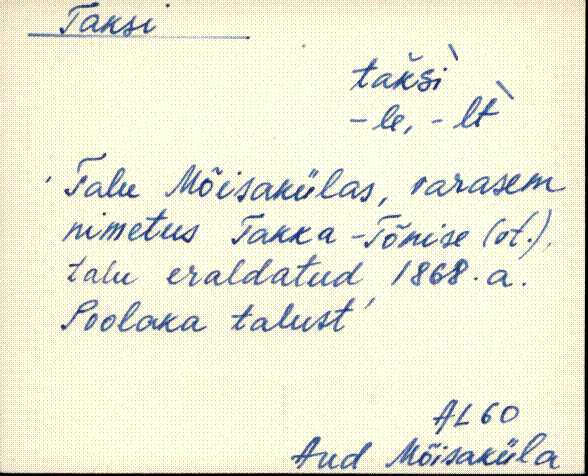 Taksi
takši`
-le, -lt`
'Talu Mõisakülas, varasem
nimetus Takka-Tõnise (vt.),
talu eraldatud 1868. a.
Soolaka talust'
AL 60
Aud Mõisaküla